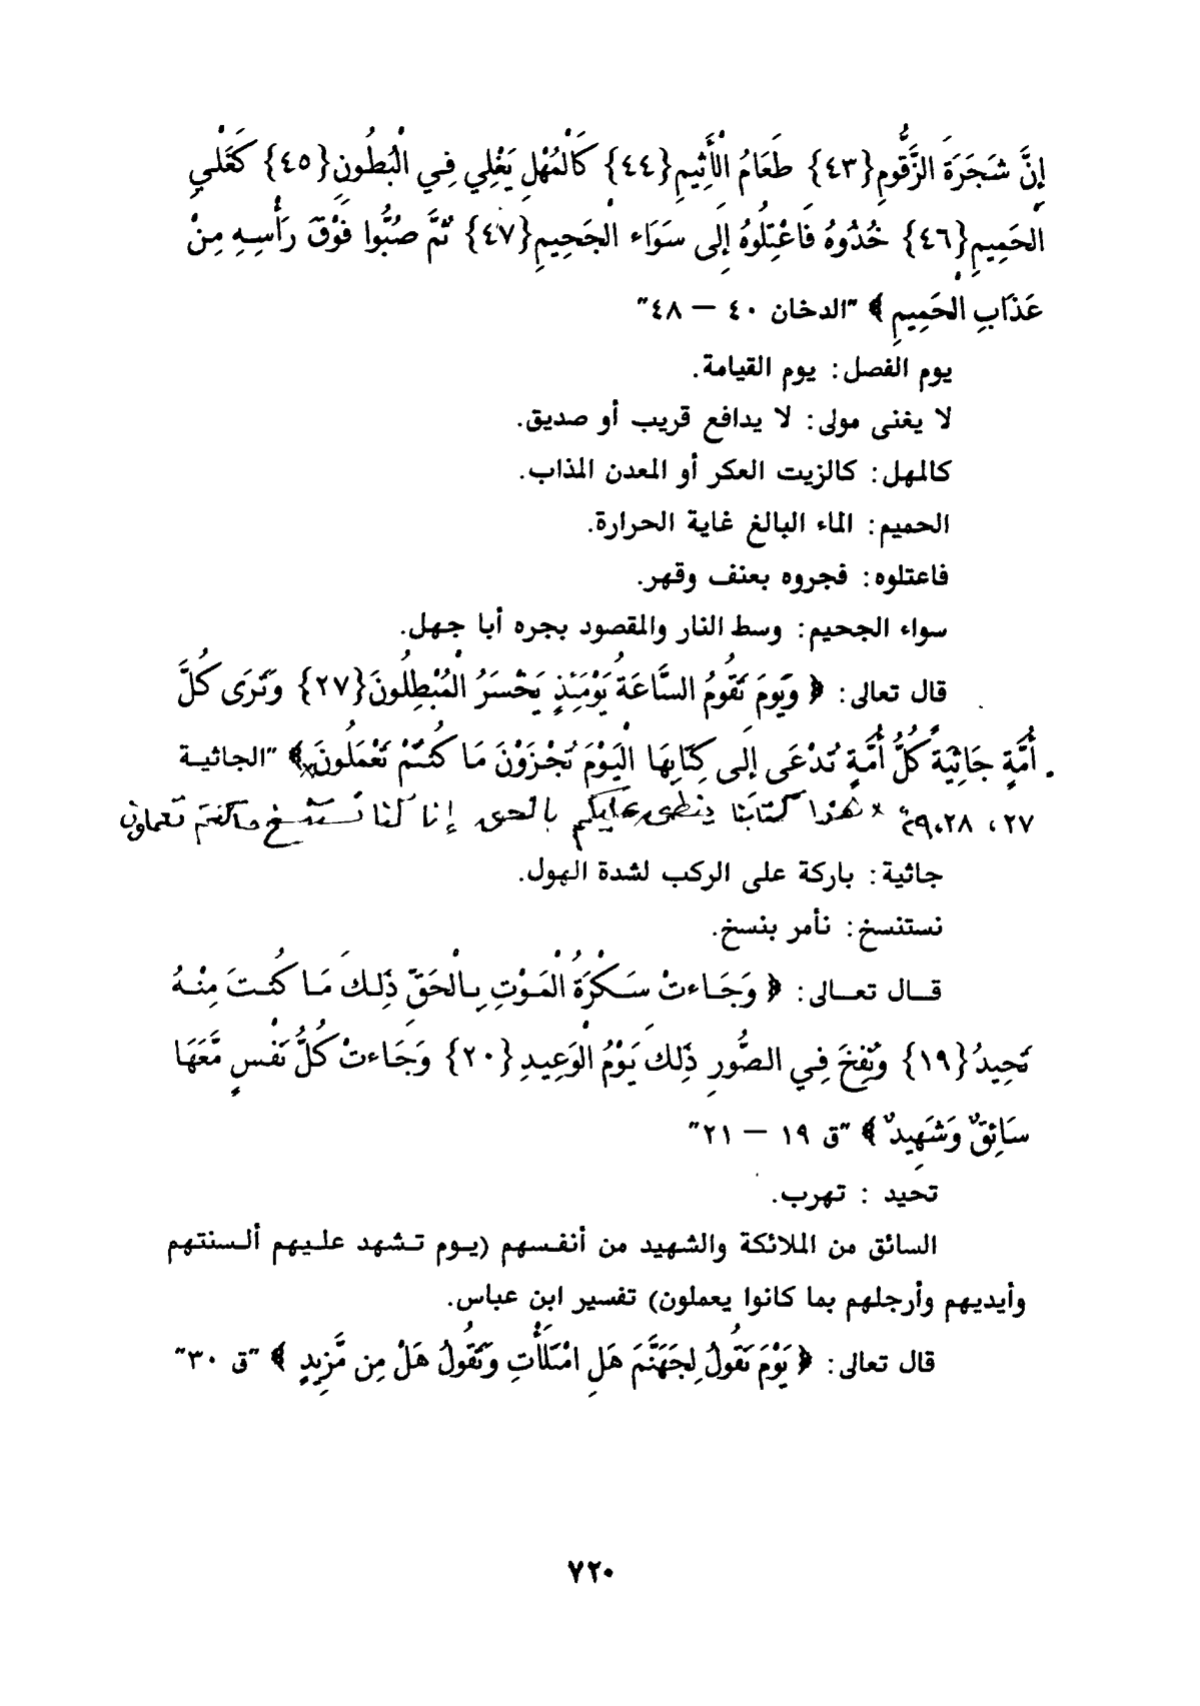 إِنَّ شَجَرَةَ الزَّقُّومِ{٤٣} طَعَامُ الْأَثِيمِ{٤٤} كَالْمُهْلِ يَغْلِي فِي الْبُطُونِ{٤٥} كَغَلْيِ
الْحَمِيمِ{٤٦} خُذُوهُ فَاعْتِلُوهُ إِلَى سَوَاء الْجَحِيمِ{٤٧} ثُمَّ صُبُّوا فَوْقَ رَأْسِهِ مِنْ
عَذَابِ الْحَمِيمِ ﴾ "الدخان ٤٠ – ٤٨"
يوم الفصل: يوم القيامة.
لا يغنى مولى: لا يدافع قريب أو صديق.
كالمهل: كالزيت العكر أو المعدن المذاب.
الحميم: الماء البالغ غاية الحرارة.
فاعتلوه: فجروه بعنف وقهر.
سواء الجحيم: وسط النار والمقصود بجره أبا جهل.
قال تعالى: ﴿ وَيَومَ تَقُومُ السَّاعَةُ يَوْمَئِذٍ يَخْسَرُ الْمُبْطِلُونَ{٢٧} وَتَرَى كُلَّ
أُمَّةٍ جَاثِيَةً كُلُّ أُمَّةٍ تُدْعَى إِلَى كِتَابِهَا الْيَوْمَ تُجْزَوْنَ مَا كُنتُمْ تَعْمَلُونَ×﴾ "الجاثية
٢٧ ، ٢٨،٢٩" × هذا كتابنا ينطق عليكم بالحق إنا كنا نستنسخ ما كنتم تعملون
جاثية: باركة على الركب لشدة الهول.
نستنسخ: نأمر بنسخ.
قال تعالى: ﴿ وَجَاءتْ سَكْرَةُ الْمَوْتِ بِالْحَقِّ ذَلِكَ مَا كُنتَ مِنْهُ
تَحِيدُ{١٩} وَنُفِخَ فِي الصُّورِ ذَلِكَ يَوْمُ الْوَعِيدِ{٢٠} وَجَاءتْ كُلُّ نَفْسٍ مَّعَهَا
سَائِقٌ وَشَهِيدٌ ﴾ "ق ١٩ – ٢١"
تحيد : تهرب.
السائق من الملائكة والشهيد من أنفسهم (يوم تشهد عليهم ألسنتهم
وأيديهم وأرجلهم بما كانوا يعملون) تفسير ابن عباس.
قال تعالى: ﴿ يَوْمَ نَقُولُ لِجَهَنَّمَ هَلِ امْتَلَأْتِ وَتَقُولُ هَلْ مِن مَّزِيدٍ ﴾ "ق ٣٠"
٧٢٠